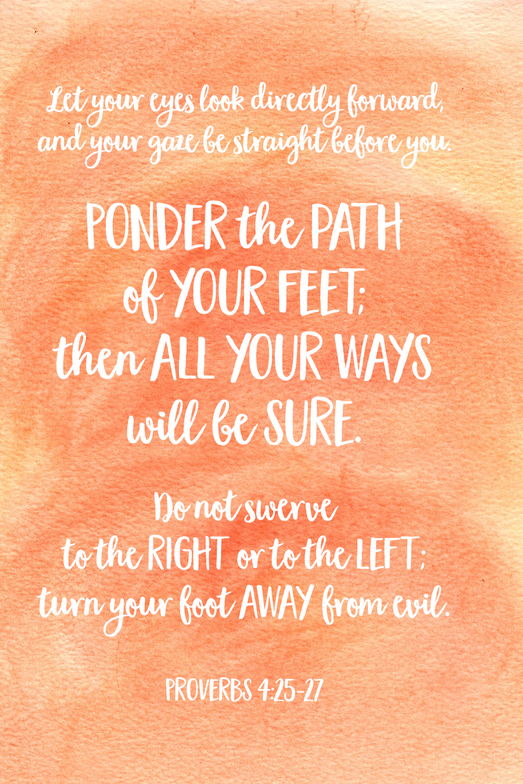 Let your eyes look directly forward,
and your gaze be straight before you.
PONDER the PATH
of YOUR FEET;
then ALL YOUR WAYS
will be SURE.
Do not swerve
to the RIGHT or to the LEFT;
turn your foot AWAY from evil.
PROVERBS 4:25-27